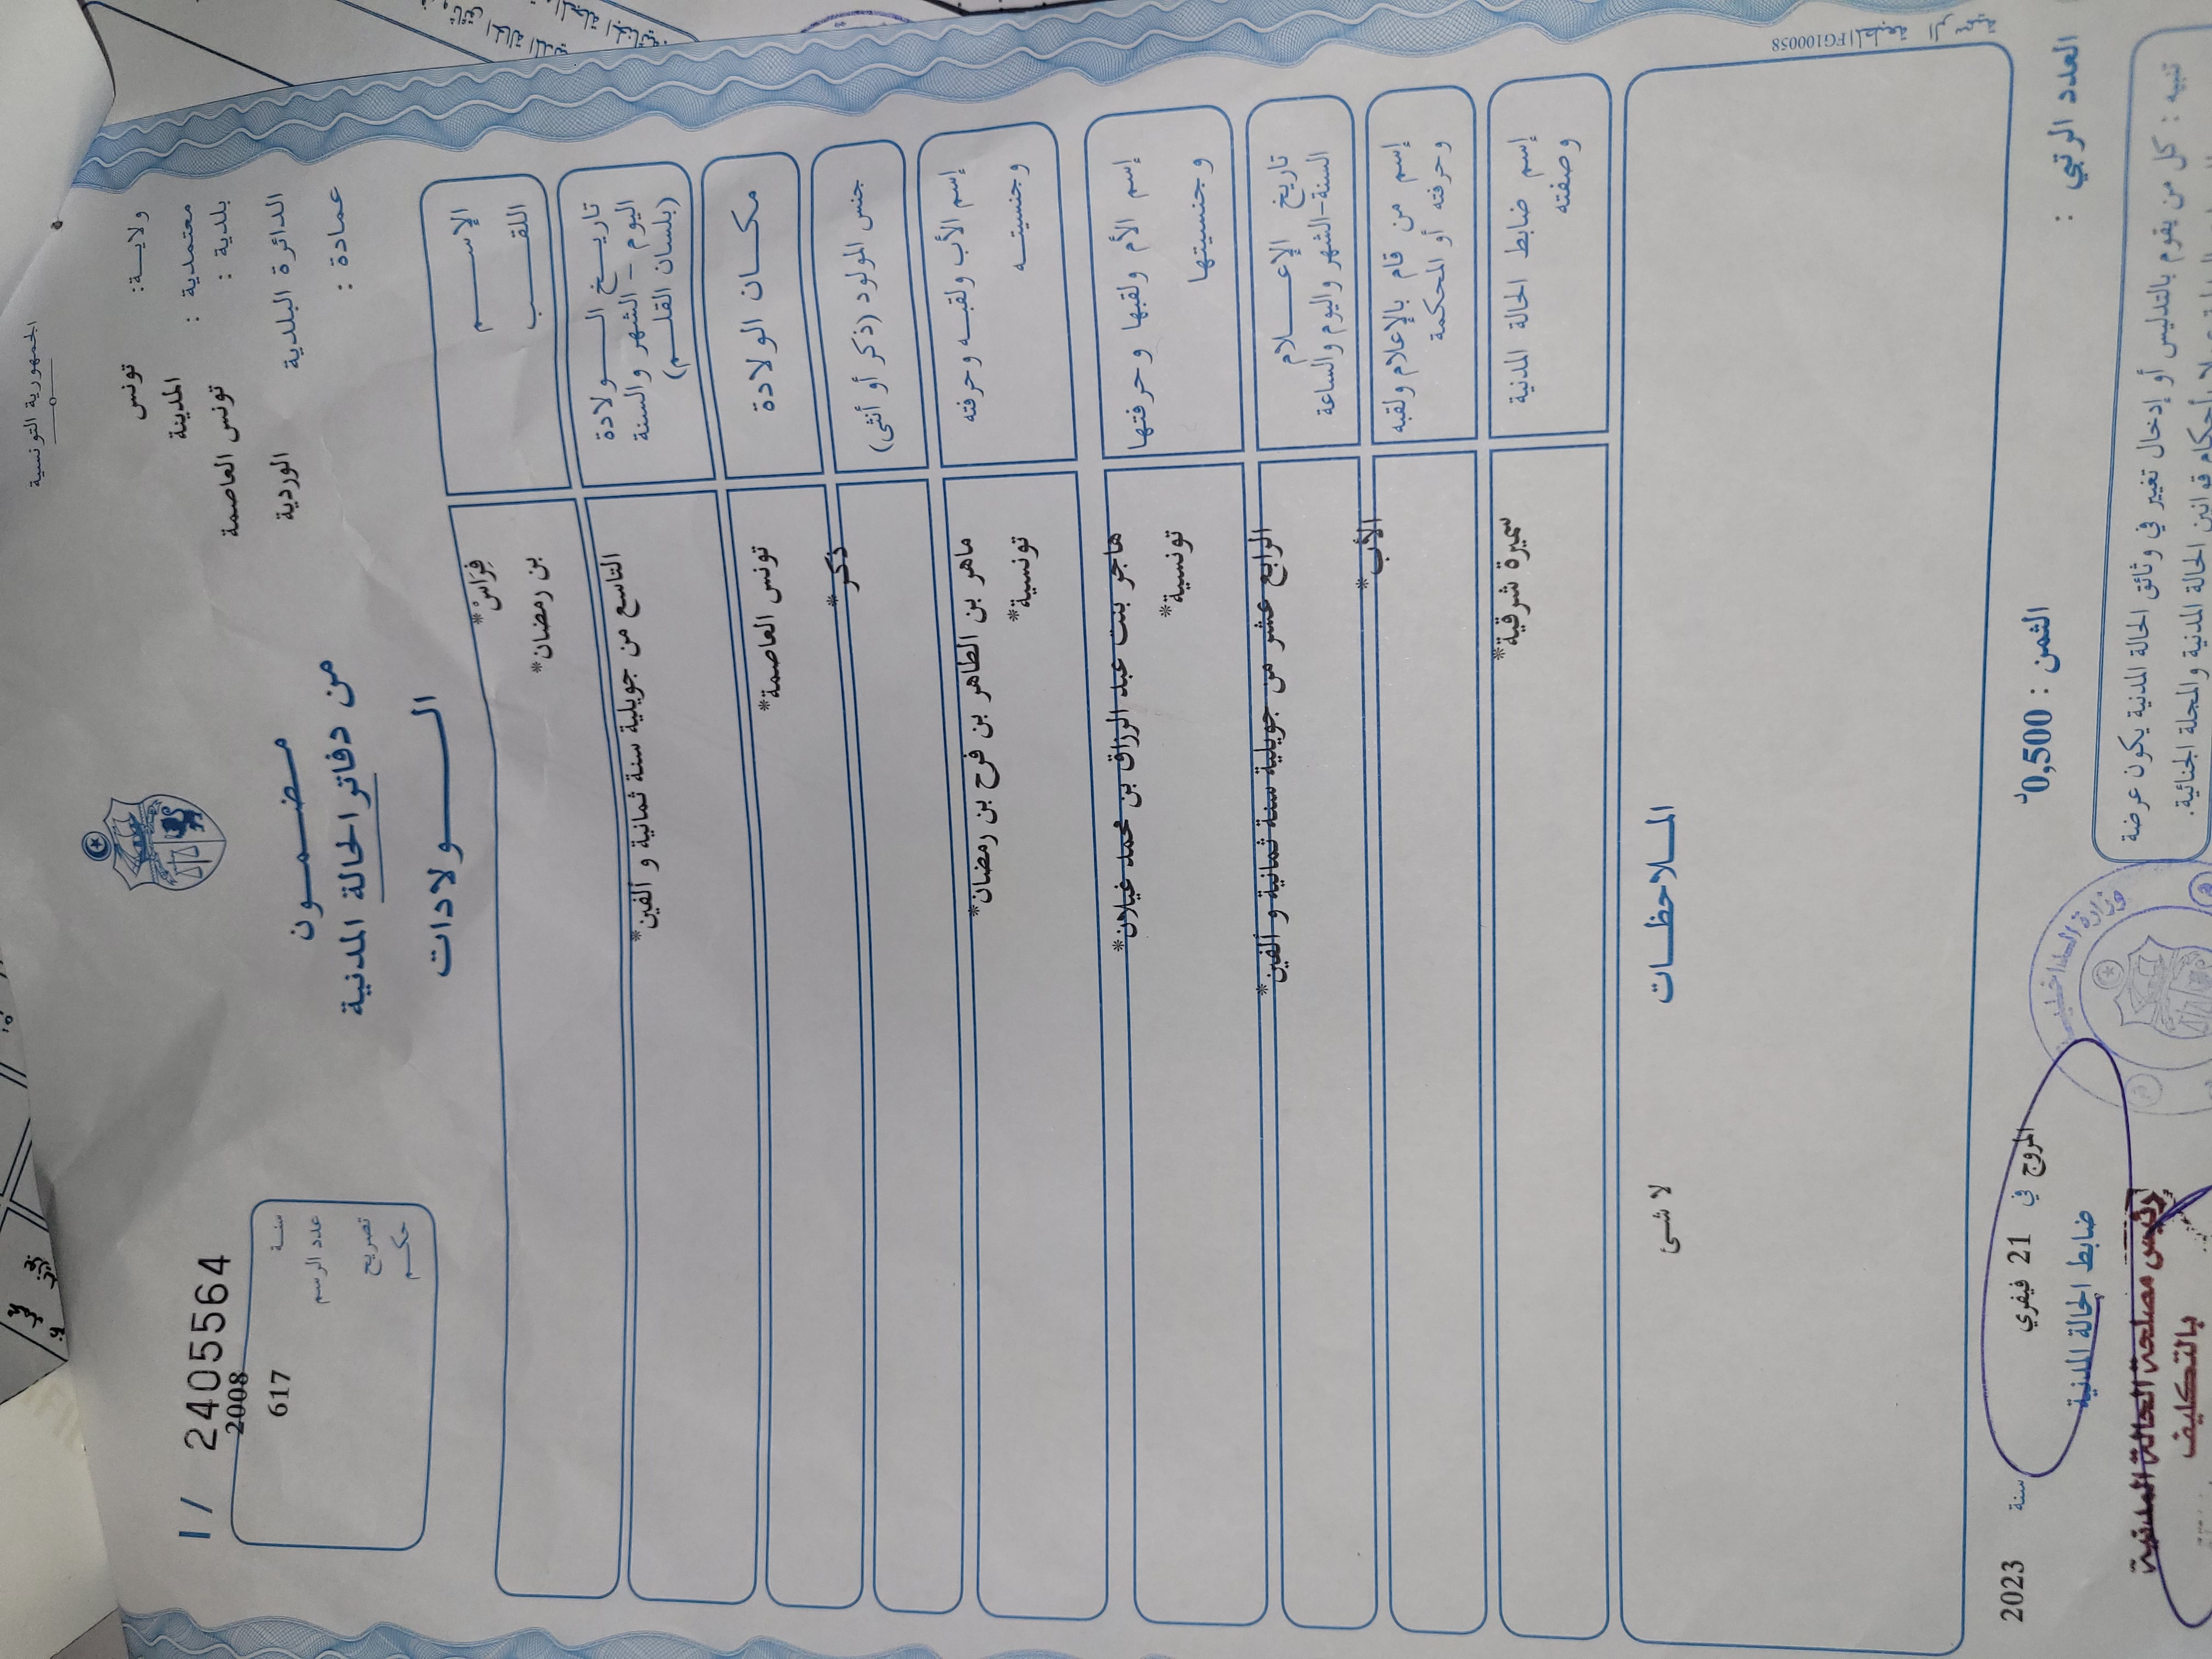 الجمهورية التونسية
ولاية: تونس
معتمدية : المدينة
بلدية : تونس العاصمة
الدائرة البلدية الوردية
عمادة :
مضمون
من دفاتر الحالة المدنية
الولادات
I / 2405564
سنة 2008
عدد الرسم 617
تصريح
حكم
الإسم فِرَاسْ*
اللقب بن رمضان*
تاريخ الولادة
اليوم - الشهر والسنة
(بلسان القلم)
التاسع من جويلية سنة ثمانية و ألفين*
مكان الولادة
تونس العاصمة*
جنس المولود (ذكر أو أنثى)
ذكر*
إسم الأب ولقبه وحرفته
وجنسيته
ماهر بن الطاهر بن فرح بن رمضان*
تونسية*
إسم الأم ولقبها وحرفتها
وجنسيتها
هاجر بنت عبد الرزاق بن محمد غيلان*
تونسية*
تاريخ الإعلام
السنة-الشهر واليوم والساعة
الرابع عشر من جويلية سنة ثمانية و ألفين*
إسم من قام بالإعلام ولقبه
وحرفته أو المحكمة
الأب*
إسم ضابط الحالة المدنية
وصفته
سميرة شرقية*
الملاحظات
لا شئ
FG100058 المطبعة الرسمية
العدد الرتبي :
الثمن : 0,500د
المروج في 21 فيفري سنة 2023
ضابط الحالة المدنية
وزارة الداخلية
رئيس مصلحة الحالة المدنية
بالتكليف
تنبيه : كل من يقوم بالتدليس أو إدخال تغيير في وثائق الحالة المدنية يكون عرضة
لأحكام قوانين الحالة المدنية والمجلة الجنائية.